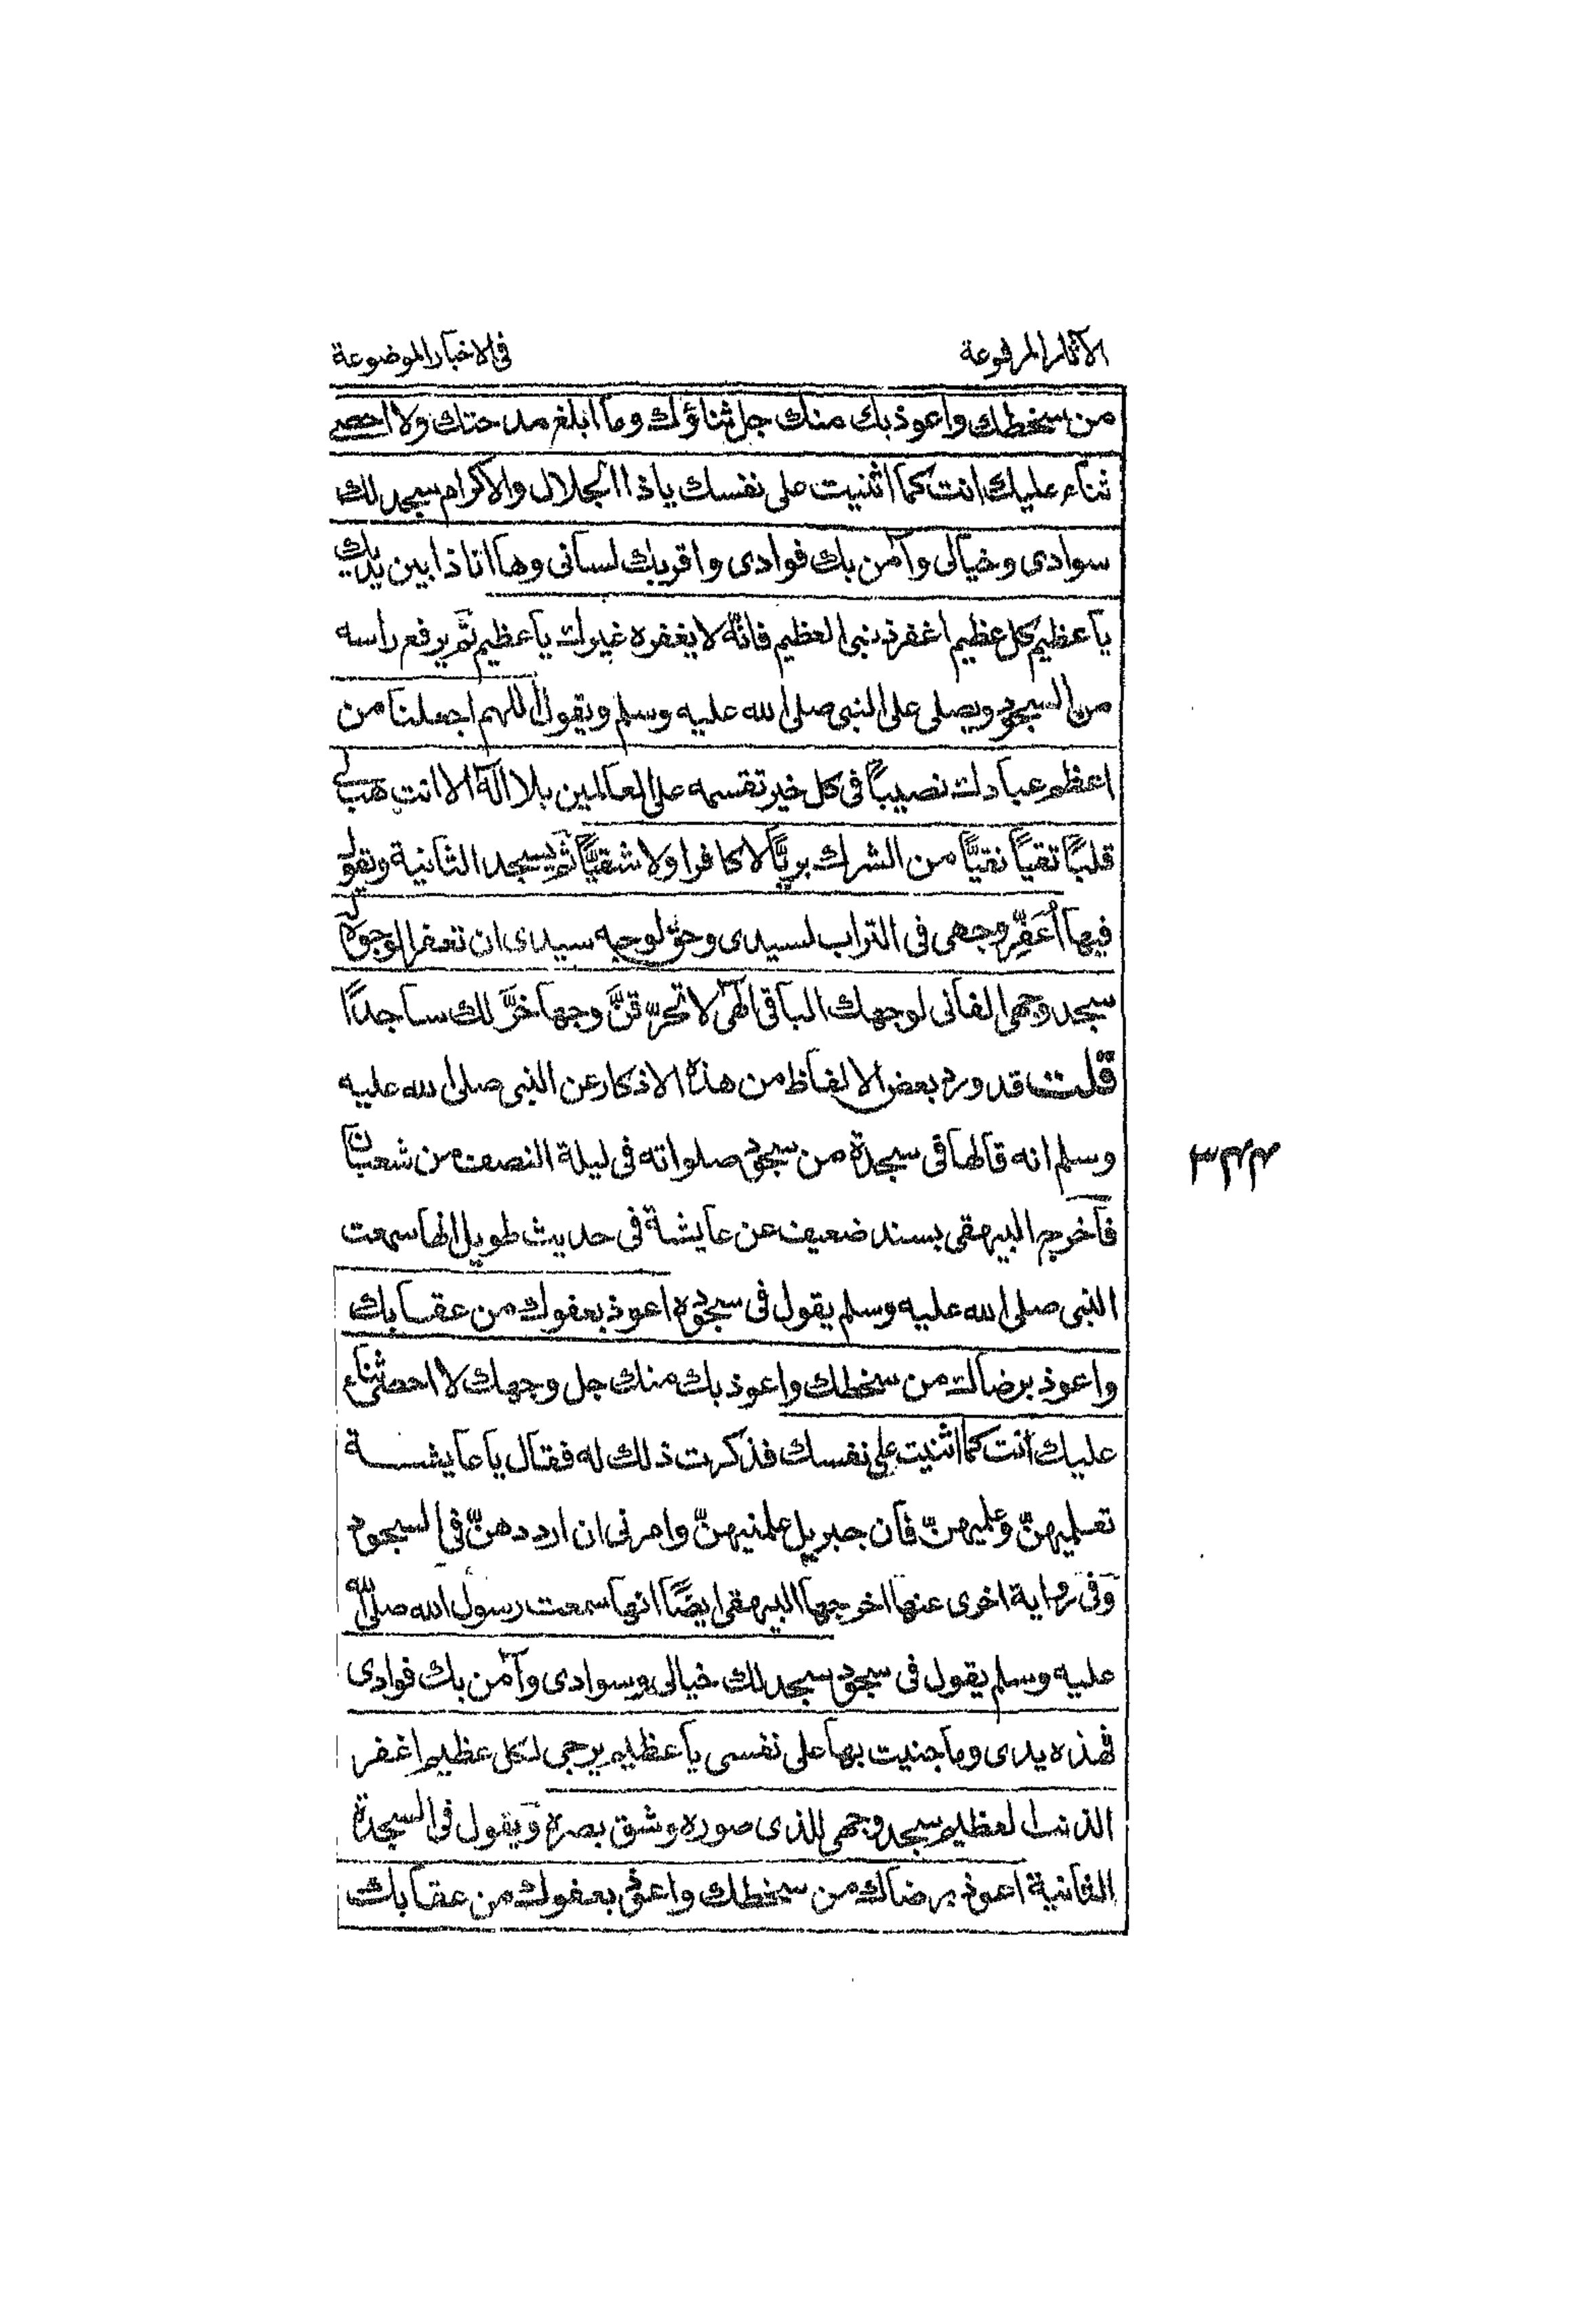 الآثار المرفوعة
فى الاخبار الموضوعة
من سخطك واعوذ بك منك جل ثناؤك وما ابلغ مدحتك ولا احصى
ثناء عليك انت كما اثنيت على نفسك ياذا الجلال والاكرام سجد لك
سوادى وخيالى وآمن بك فوادى واقر بك لسانى وها انا ذا بين يديك
يا عظيم كل عظيم اغفر ذنبى العظيم فانه لا يغفره غيرك يا عظيم ثم يرفع راسه
من السجود ويصلى على النبى صلى الله عليه وسلم ويقول اللهم اجعلنا من
اعظم عبادك نصيباً فى كل خير تقسمه على العالمين بلا اله الا انت هب لى
قلباً تقياً نقيًّا من الشرك بريًّا لا كافرا ولا شقيًّا ثم يسجد الثانية ويقول
فيها أُعَفِّر وجهى فى التراب لسيدى وحق لوجه سيدى ان تعفر الوجوه له
سجد وجهى الفانى لوجهك الباقى الهى لا تحرّقنَّ وجها خرَّ لك ساجدًا
قلت قد ورد بعض الالفاظ من هذه الاذكار عن النبى صلى الله عليه
وسلم انه قالها فى سجدة من سجود صلواته فى ليلة النصف من شعبان
فاخرج البيهقى بسند ضعيف عن عايشة فى حديث طويل انها سمعت
النبى صلى الله عليه وسلم يقول فى سجوده اعوذ بعفوك من عقابك
واعوذ برضاك من سخطك واعوذ بك منك جل وجهك لا احصى ثناء
عليك انت كما اثنيت على نفسك فذكرت ذلك له فقال يا عايشة
تعلميهنّ وعلميهنّ فان جبريل علمنيهنّ وامرنى ان ارددهنّ فى السجود
وفى رواية اخرى عنها اخرجها البيهقى ايضًا انها سمعت رسول الله صلى الله
عليه وسلم يقول فى سجود سجد لك خيالى وسوادى وآمن بك فوادى
فهذه يدى وما جنيت بها على نفسى يا عظيم يرجى لكل عظيم اغفر
الذنب العظيم سجد وجهى للذى صوره وشق بصره ويقول فى السجدة
الثانية اعوذ برضاك من سخطك واعوذ بعفوك من عقابك